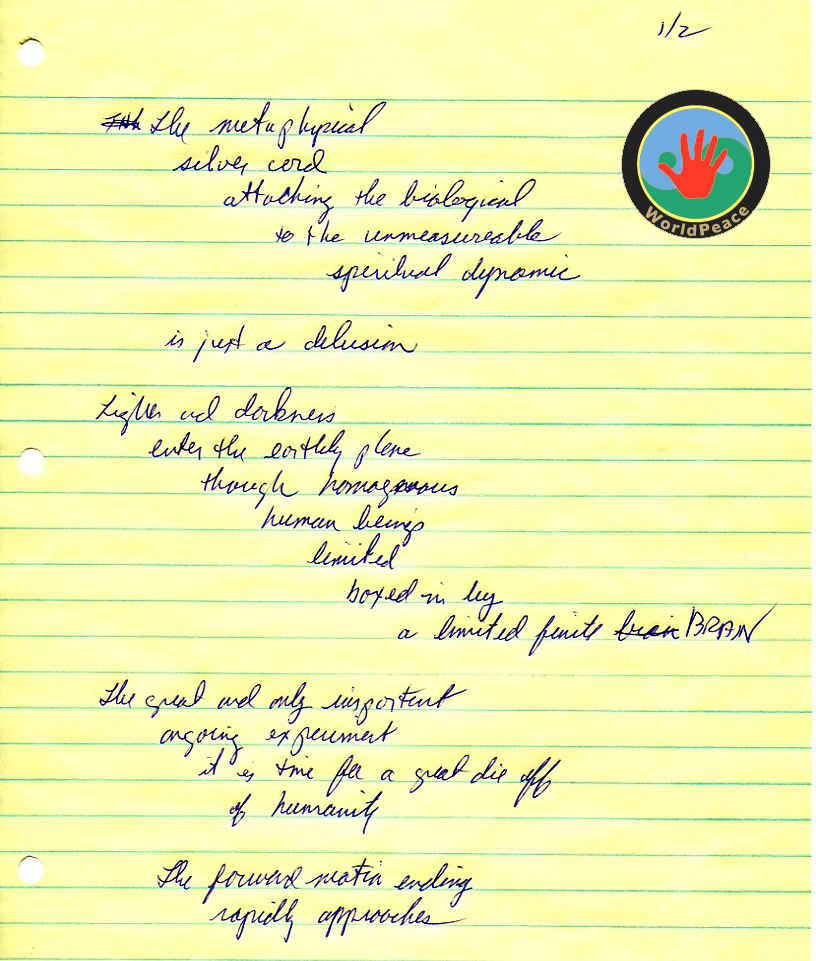 1/2
WorldPeace
The metaphyical
silver cord
attaching the biological
to the unmeasureable
spiritual dynamic
is just a delusion
and darkness
enter the earthly plane
though
human beings
limited
boxed in by
a limited finite brain BRAIN
The great and only important
ongoing experiment
it is time for a great die off
of humanity
The forward motion ending
rapidly approaches